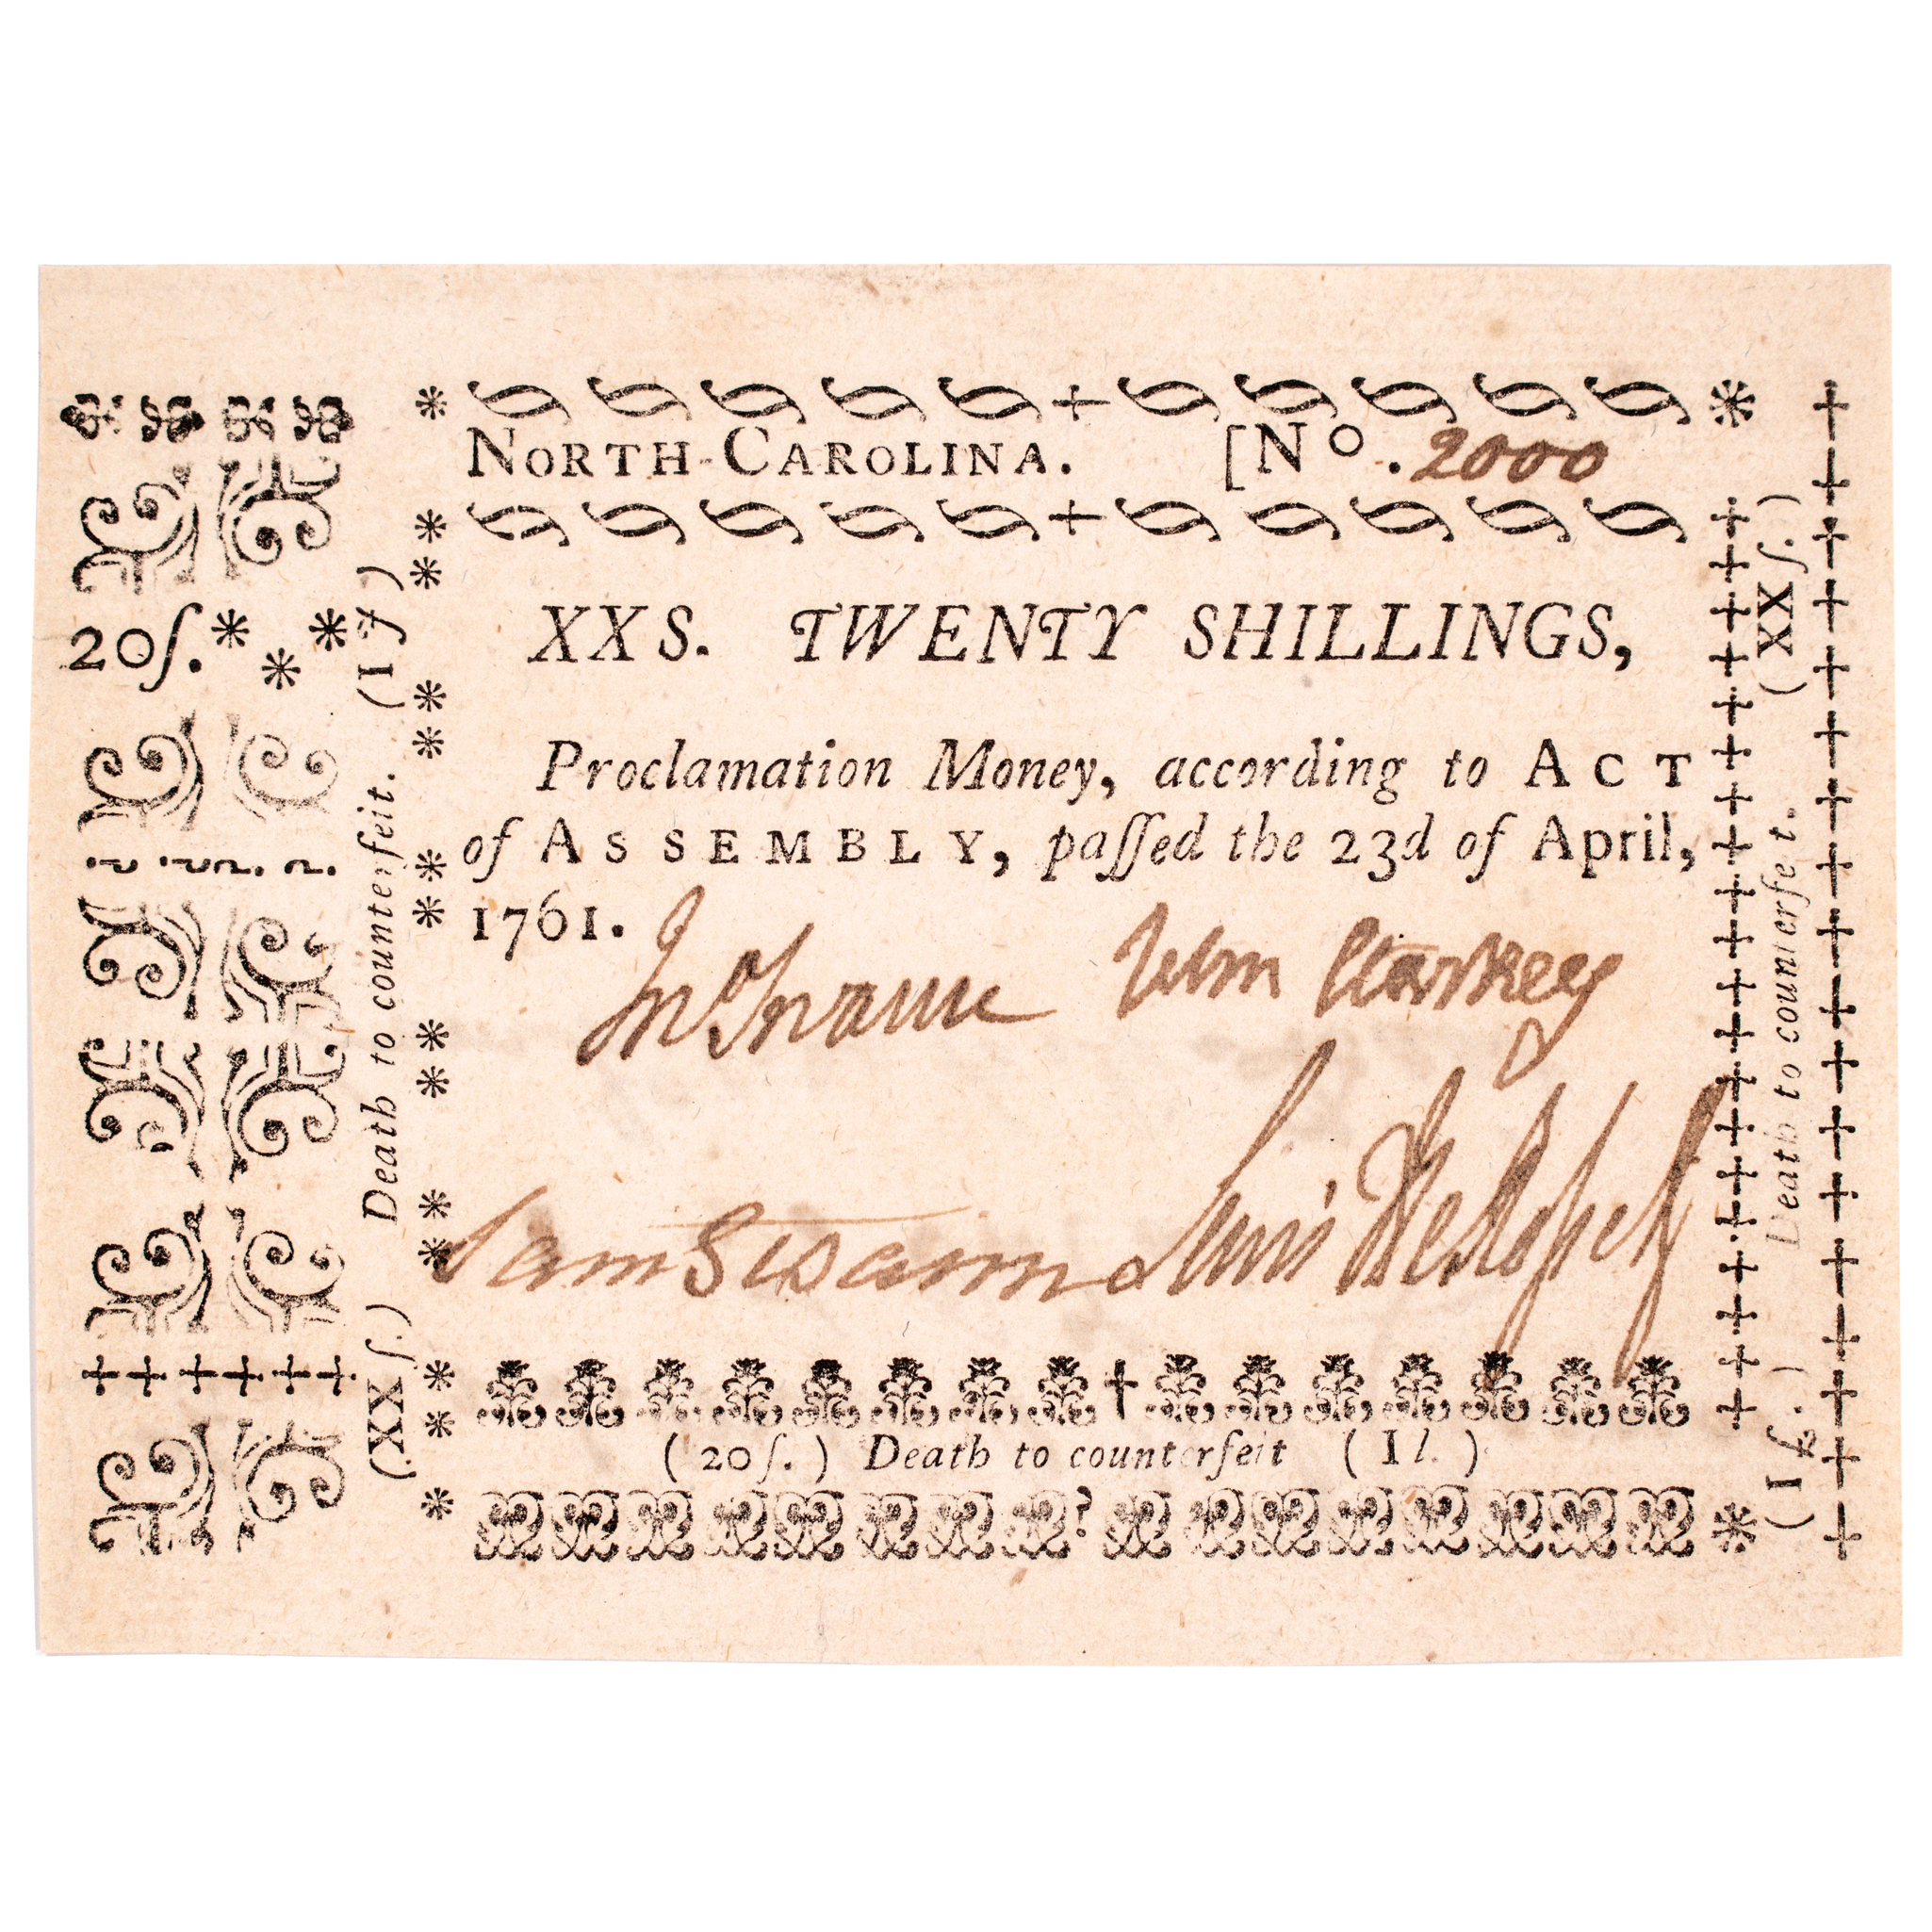 NORTH-CAROLINA. [No. 2000
XXS. TWENTY SHILLINGS,
Proclamation Money, according to ACT
of ASSEMBLY, paſſed the 23d of April,
1761.
Wm Starkey
Sam Swann Lewis DeRosset
(20ſ.) Death to counterfeit (1l.)
20ſ.
(XXſ.) Death to counterfeit.
Death to counterfeit. (XXſ.)